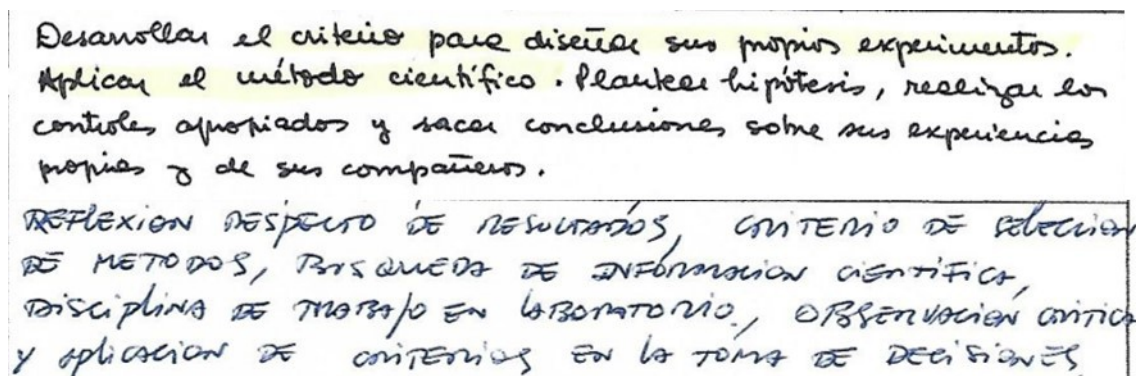 Desarrollar el criterio para diseñar sus propios experimentos.
Aplicar el método científico. Plantear hipótesis, realizar los
controles apropiados y sacar conclusiones sobre sus experiencias
propias y de sus compañeros.
REFLEXION RESPECTO DE RESULTADOS, CRITERIO DE SELECCION
DE METODOS, BUSQUEDA DE INFORMACION CIENTÍFICA,
DISCIPLINA DE TRABAJO EN LABORATORIO, OBSERVACION CRITICA
Y APLICACION DE CRITERIOS EN LA TOMA DE DECISIONES